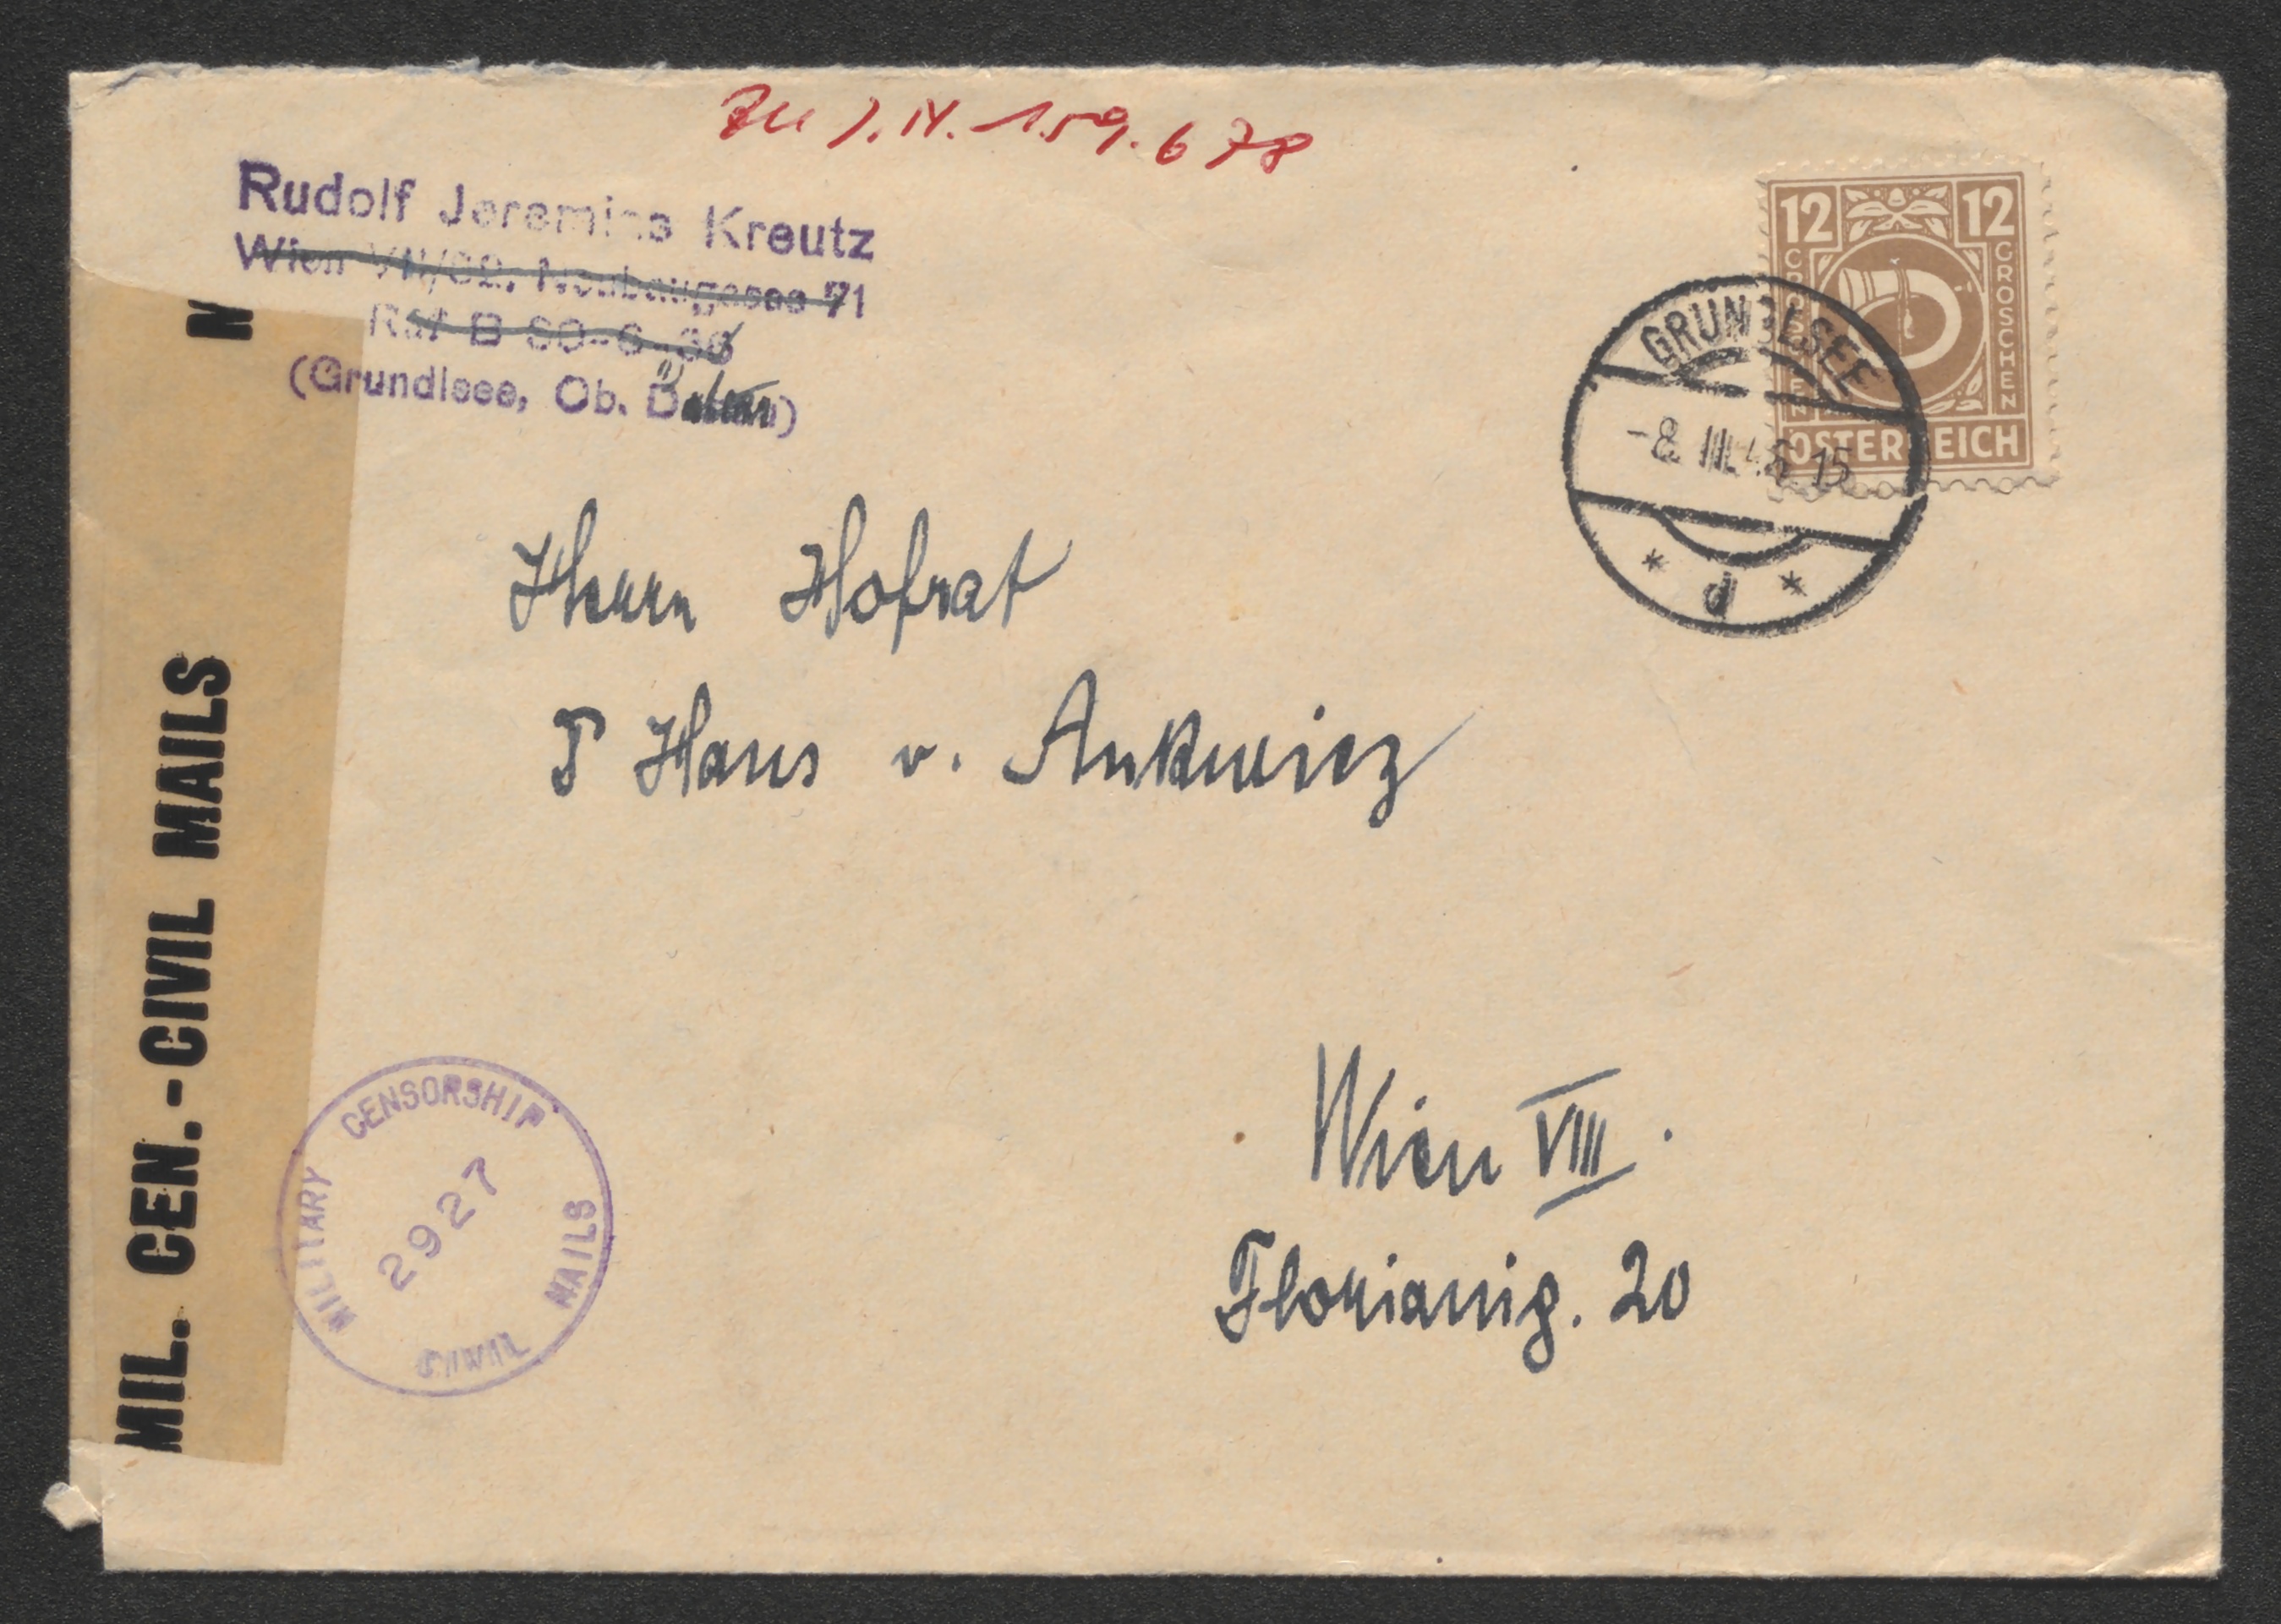 Zu I.N. 159.678
Rudolf Jeremias Kreutz
Wien VII/62, Neubaugasse 71
Ruf B 30-6-36
(Grundlsee, Ob.
12 12
GROSCHEN GROSCHEN
ÖSTERREICH
GRUNDLSEE
-8. III. 46 15
* d *
Herrn Hofrat
D Hans v. Ankwicz
Wien VIII.
Florianig. 20
MIL. CEN.-CIVIL MAILS
N
MILITARY CENSORSHIP
2927
CIVIL MAILS